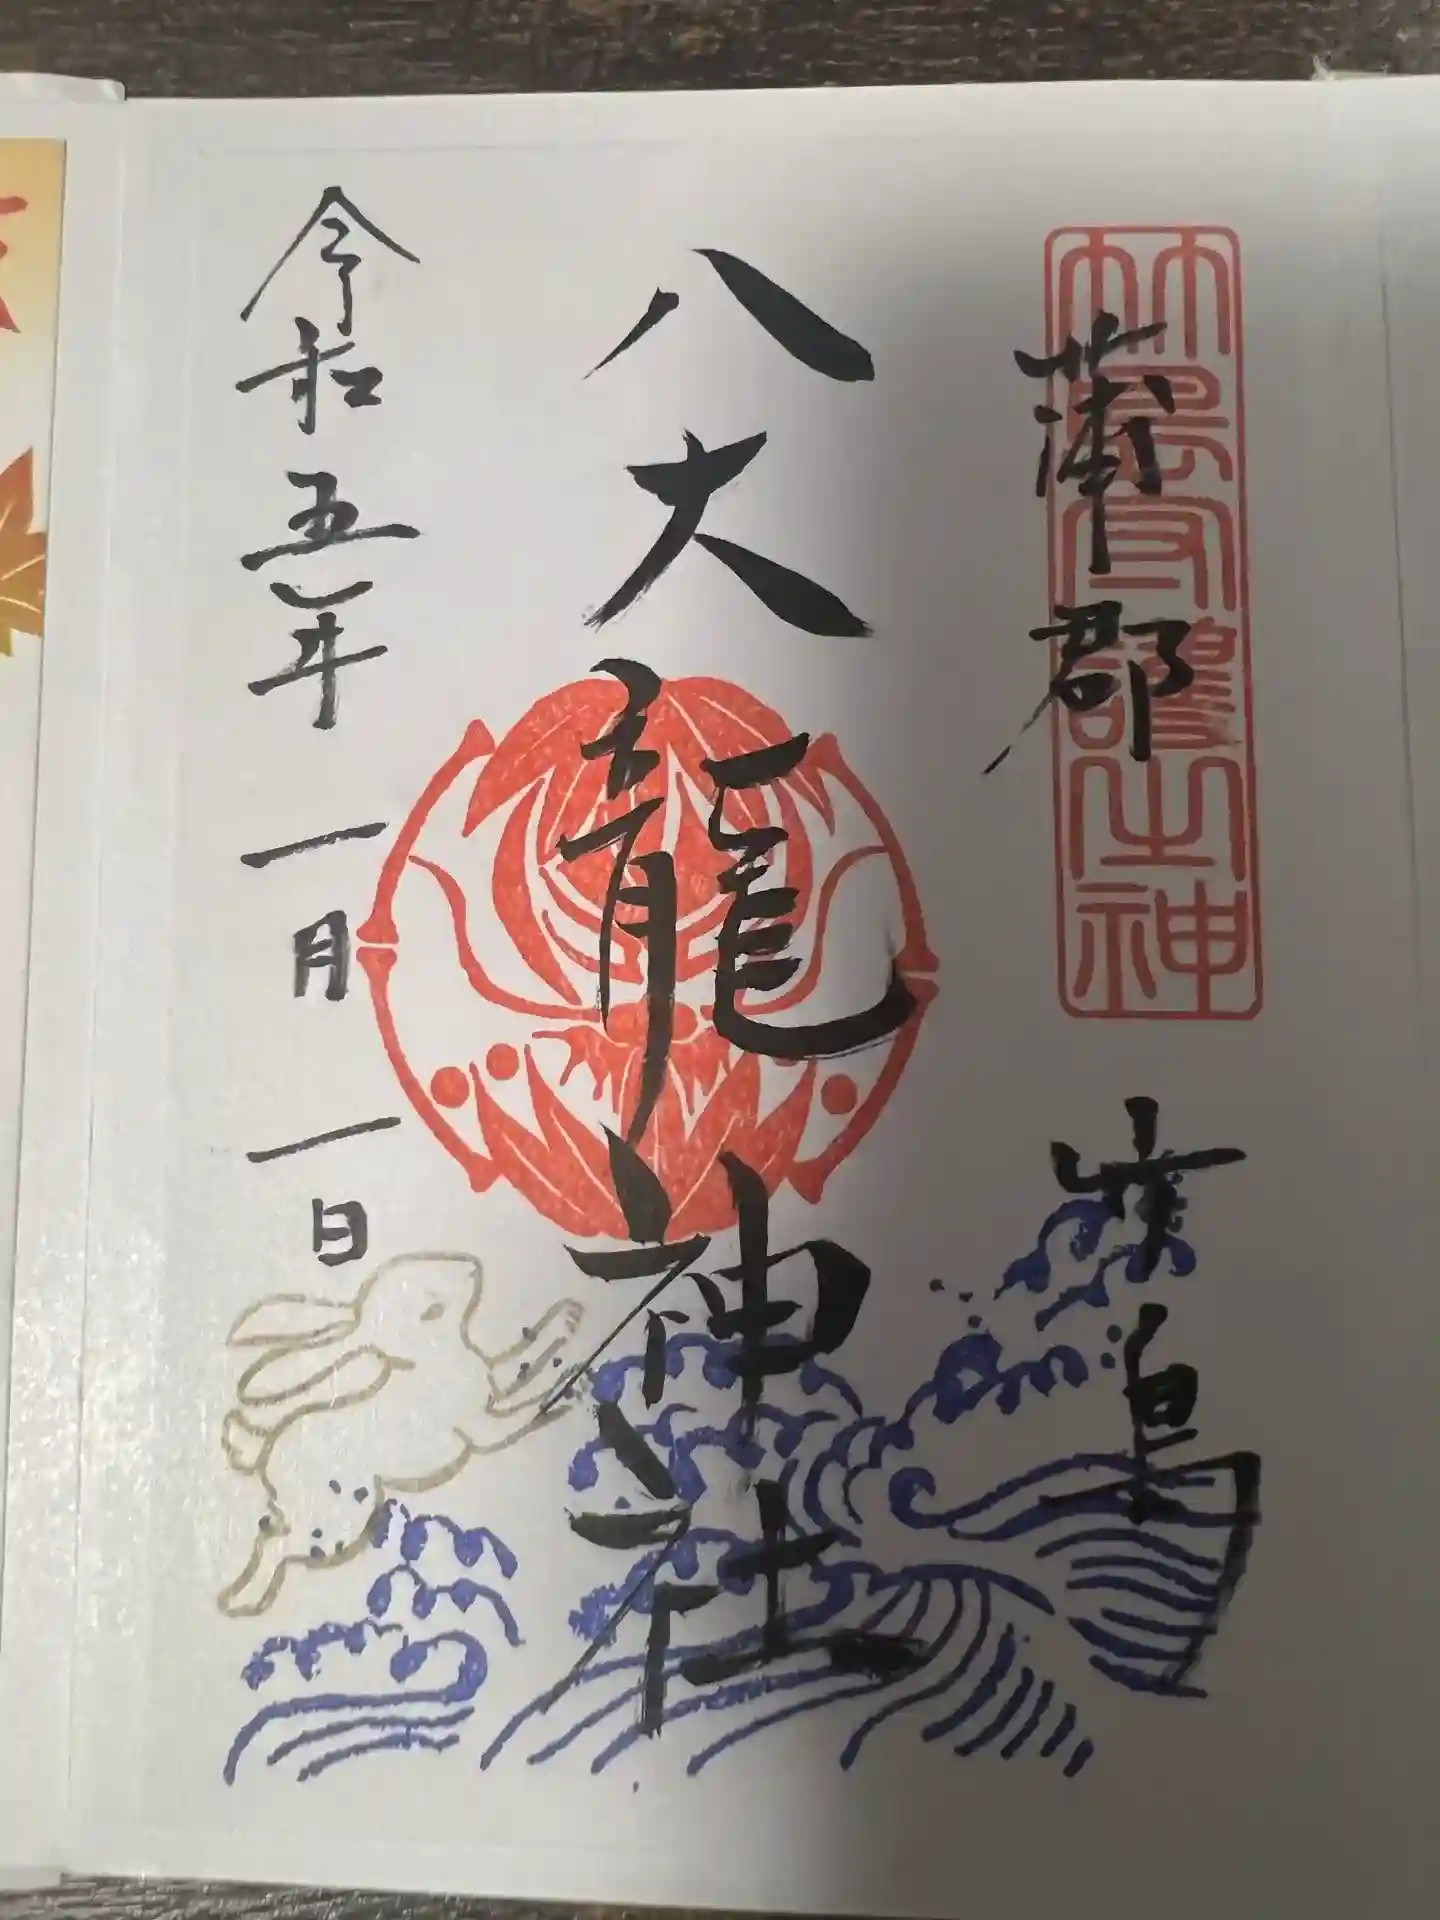 竹島守護之神
蒲郡 竹島
八大龍神社
令和五年一月一日